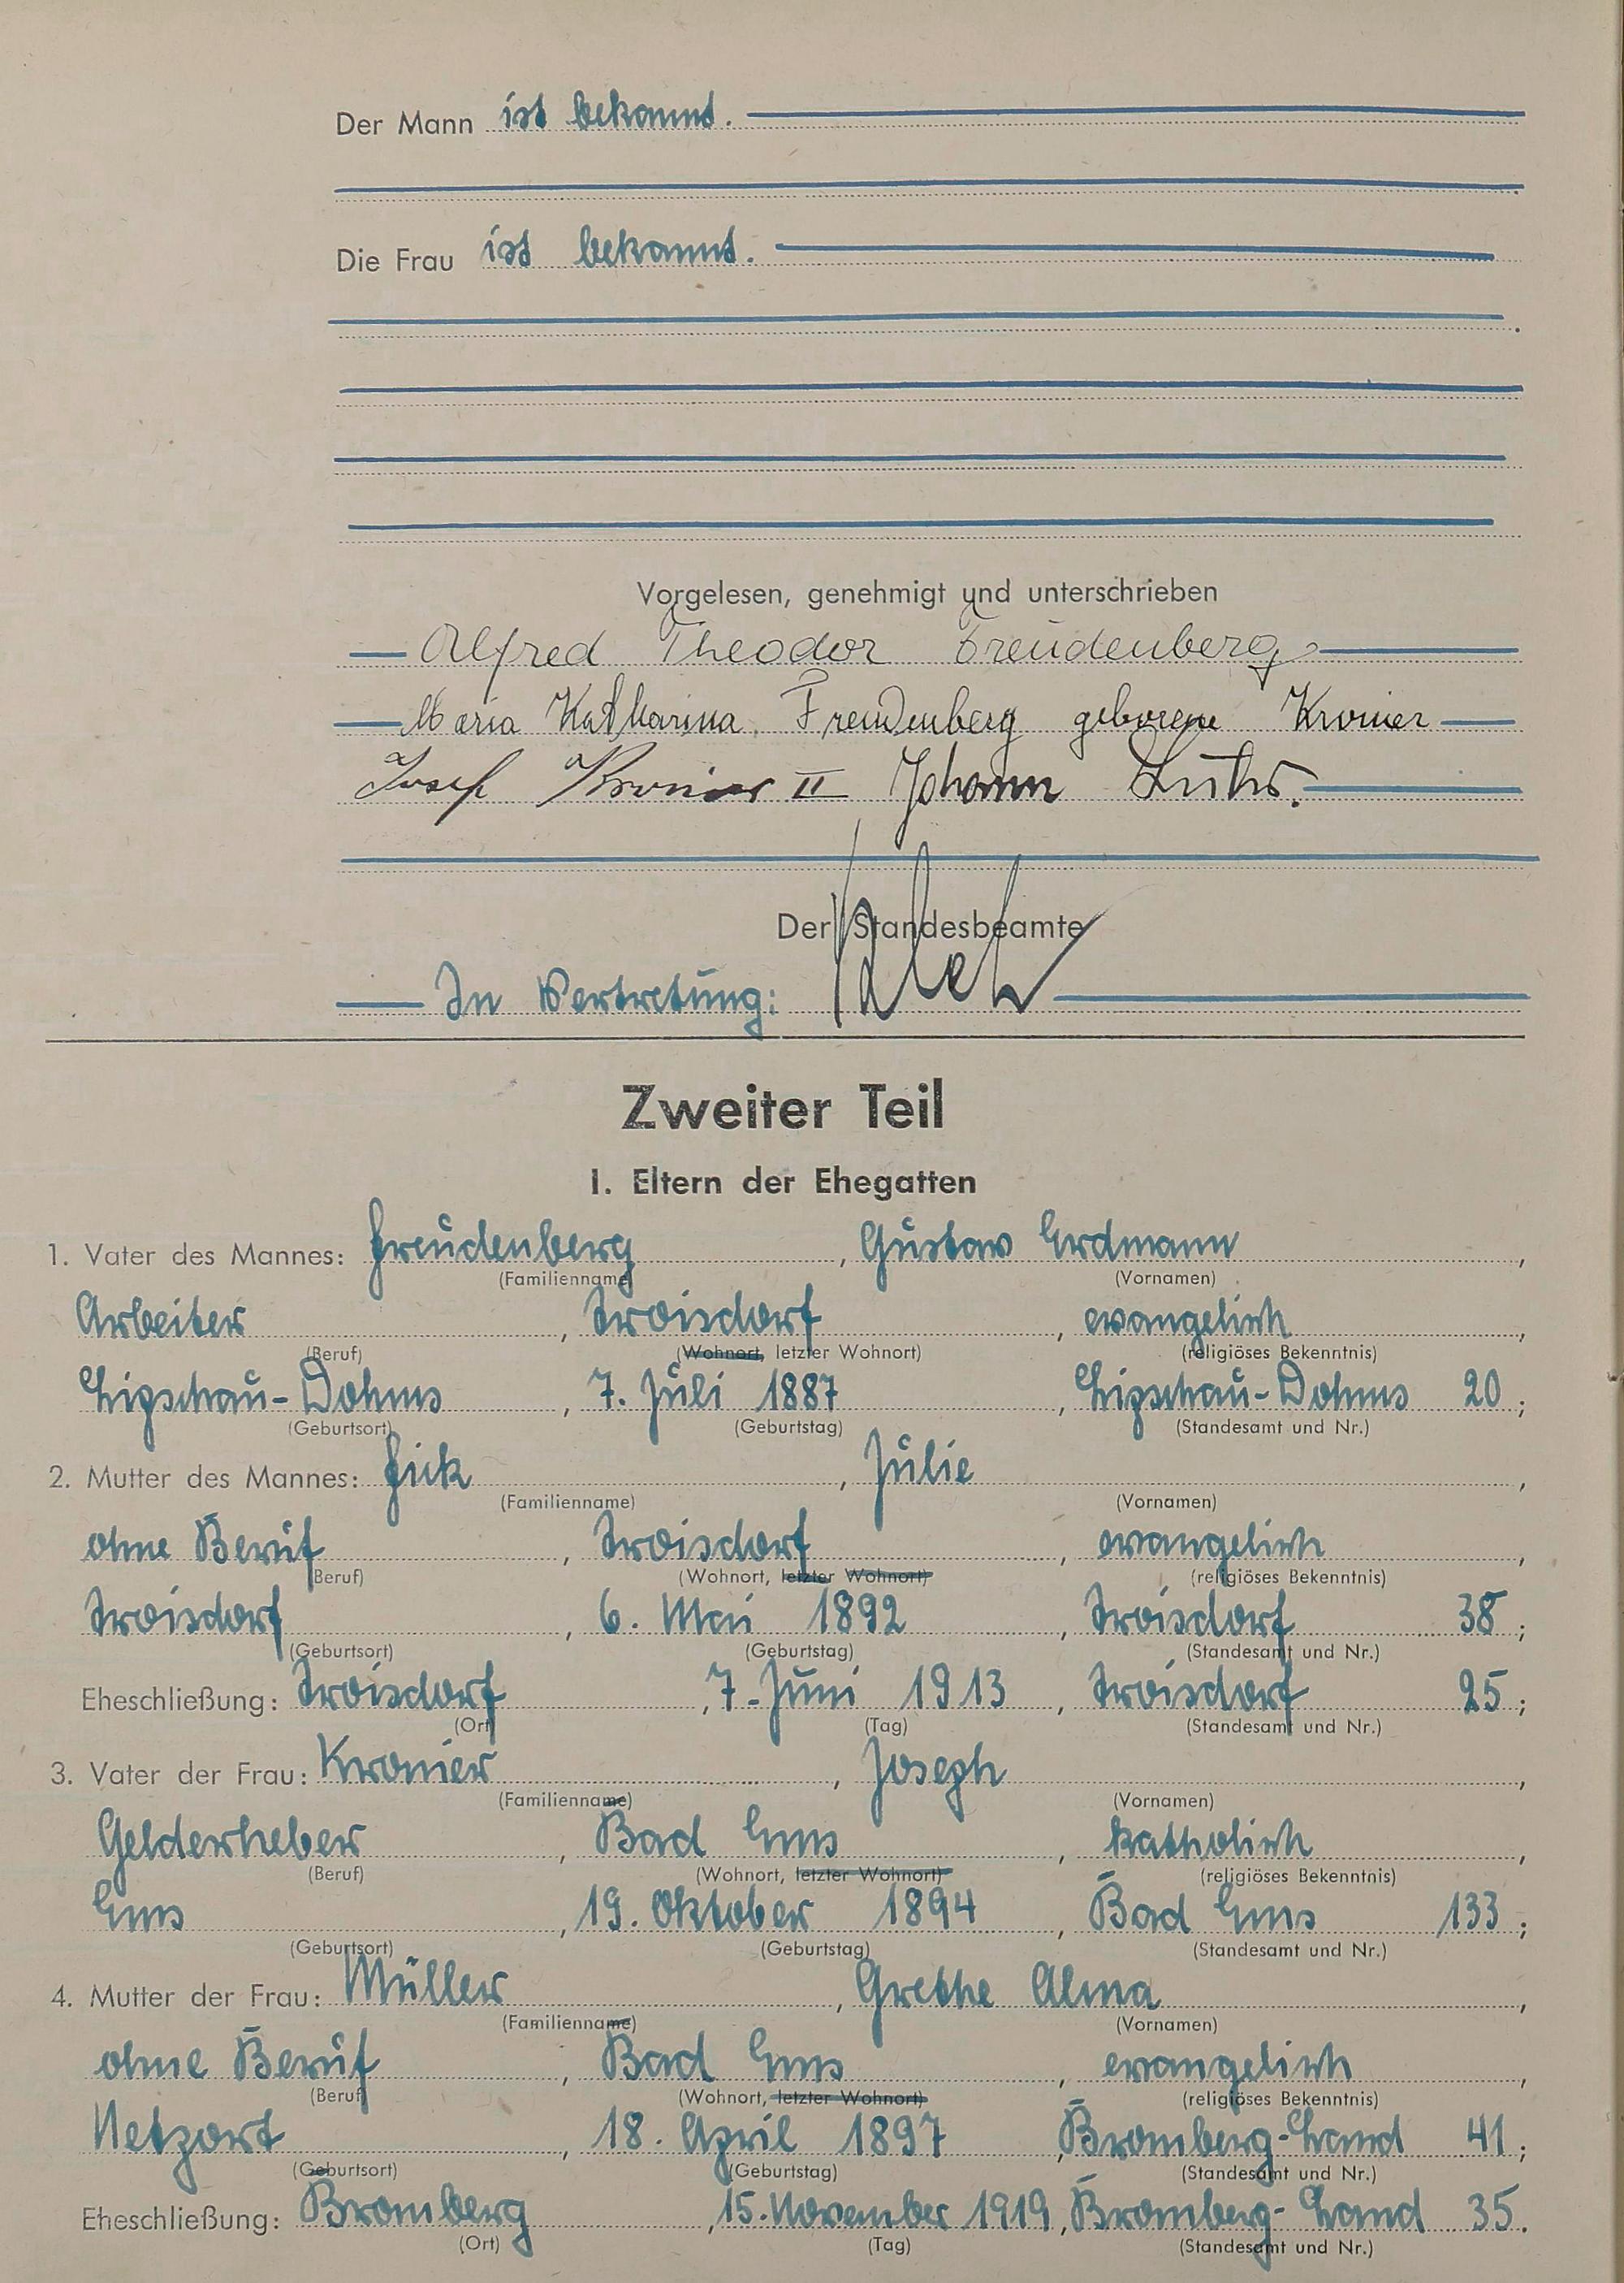 Der Mann ist bekannt.
Die Frau ist bekannt.
Vorgelesen, genehmigt und unterschrieben
Alfred Theodor Freudenberg
Maria Katharina Freudenberg geborene Kronier
Josef Kronier II Johann
Der Standesbeamte
In Vertretung:
Zweiter Teil
I. Eltern der Ehegatten
1. Vater des Mannes: Freudenberg, Gustav Erdmann,
(Familienname) (Vornamen)
Arbeiter, Troisdorf, evangelisch,
(Beruf) (Wohnort, letzter Wohnort) (religiöses Bekenntnis)
Lipschau-Dohms, 7. Juli 1887, Lipschau-Dohms 20;
(Geburtsort) (Geburtstag) (Standesamt und Nr.)
2. Mutter des Mannes: Fick, Julie,
(Familienname) (Vornamen)
ohne Beruf, Troisdorf, evangelisch,
(Beruf) (Wohnort, letzter Wohnort) (religiöses Bekenntnis)
Troisdorf, 6. Mai 1892, Troisdorf 38;
(Geburtsort) (Geburtstag) (Standesamt und Nr.)
Eheschließung: Troisdorf, 7. Juni 1913, Troisdorf 25;
(Ort) (Tag) (Standesamt und Nr.)
3. Vater der Frau: Kronier, Joseph,
(Familienname) (Vornamen)
Gelderheber, Bad Ems, katholisch,
(Beruf) (Wohnort, letzter Wohnort) (religiöses Bekenntnis)
Ems, 19. Oktober 1894, Bad Ems 133;
(Geburtsort) (Geburtstag) (Standesamt und Nr.)
4. Mutter der Frau: Müller, Grethe Alma,
(Familienname) (Vornamen)
ohne Beruf, Bad Ems, evangelisch,
(Beruf) (Wohnort, letzter Wohnort) (religiöses Bekenntnis)
Netzort, 18. April 1897, Bromberg-Land 41;
(Geburtsort) (Geburtstag) (Standesamt und Nr.)
Eheschließung: Bromberg, 15. November 1919, Bromberg-Land 35.
(Ort) (Tag) (Standesamt und Nr.)